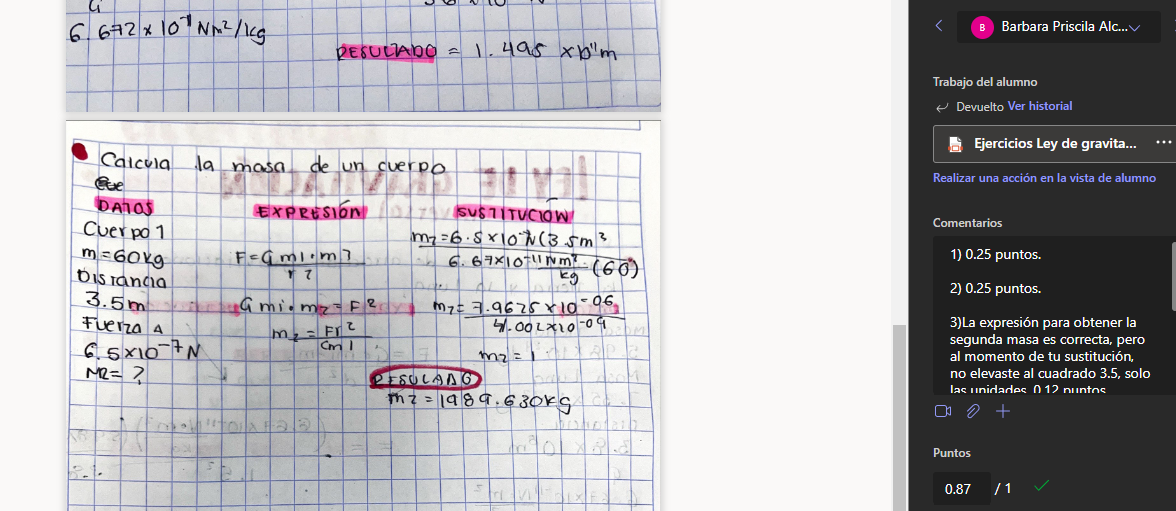 6.672 x 10⁻¹¹ Nm²/kg
RESULTADO = 1.495 x10¹¹m
Calcula la masa de un cuerpo
DATOS
EXPRESIÓN
SUSTITUCIÓN
Cuerpo 1
m=60kg
Distancia
3.5m
Fuerza
6.5x10⁻⁷N
M2= ?
F=Gm1·m2
r²
Gm1·m2=F²
m2=Fr²
Gm1
m2=6.5x10⁻⁷N(3.5m²
6.67x10⁻¹¹Nm² (60)
kg
m2=7.9625x10⁻⁰⁶
4.002x10⁻⁰⁹
m2=1
RESULADO
m2=1989.630kg
B
Barbara Priscila Alc...
Trabajo del alumno
Devuelto Ver historial
Ejercicios Ley de gravita... ...
Realizar una acción en la vista de alumno
Comentarios
1) 0.25 puntos.
2) 0.25 puntos.
3)La expresión para obtener la
segunda masa es correcta, pero
al momento de tu sustitución,
no elevaste al cuadrado 3.5, solo
las unidades. 0.12 puntos
Puntos
0.87 / 1